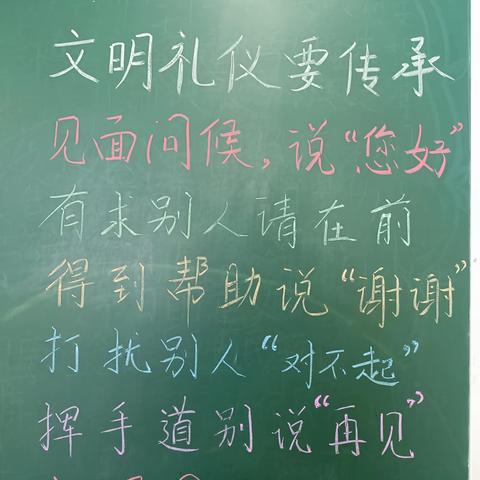 文明礼仪要传承
见面问候，说“您好”
有求别人请在前
得到帮助说“谢谢”
打扰别人“对不起”
挥手道别说“再见”